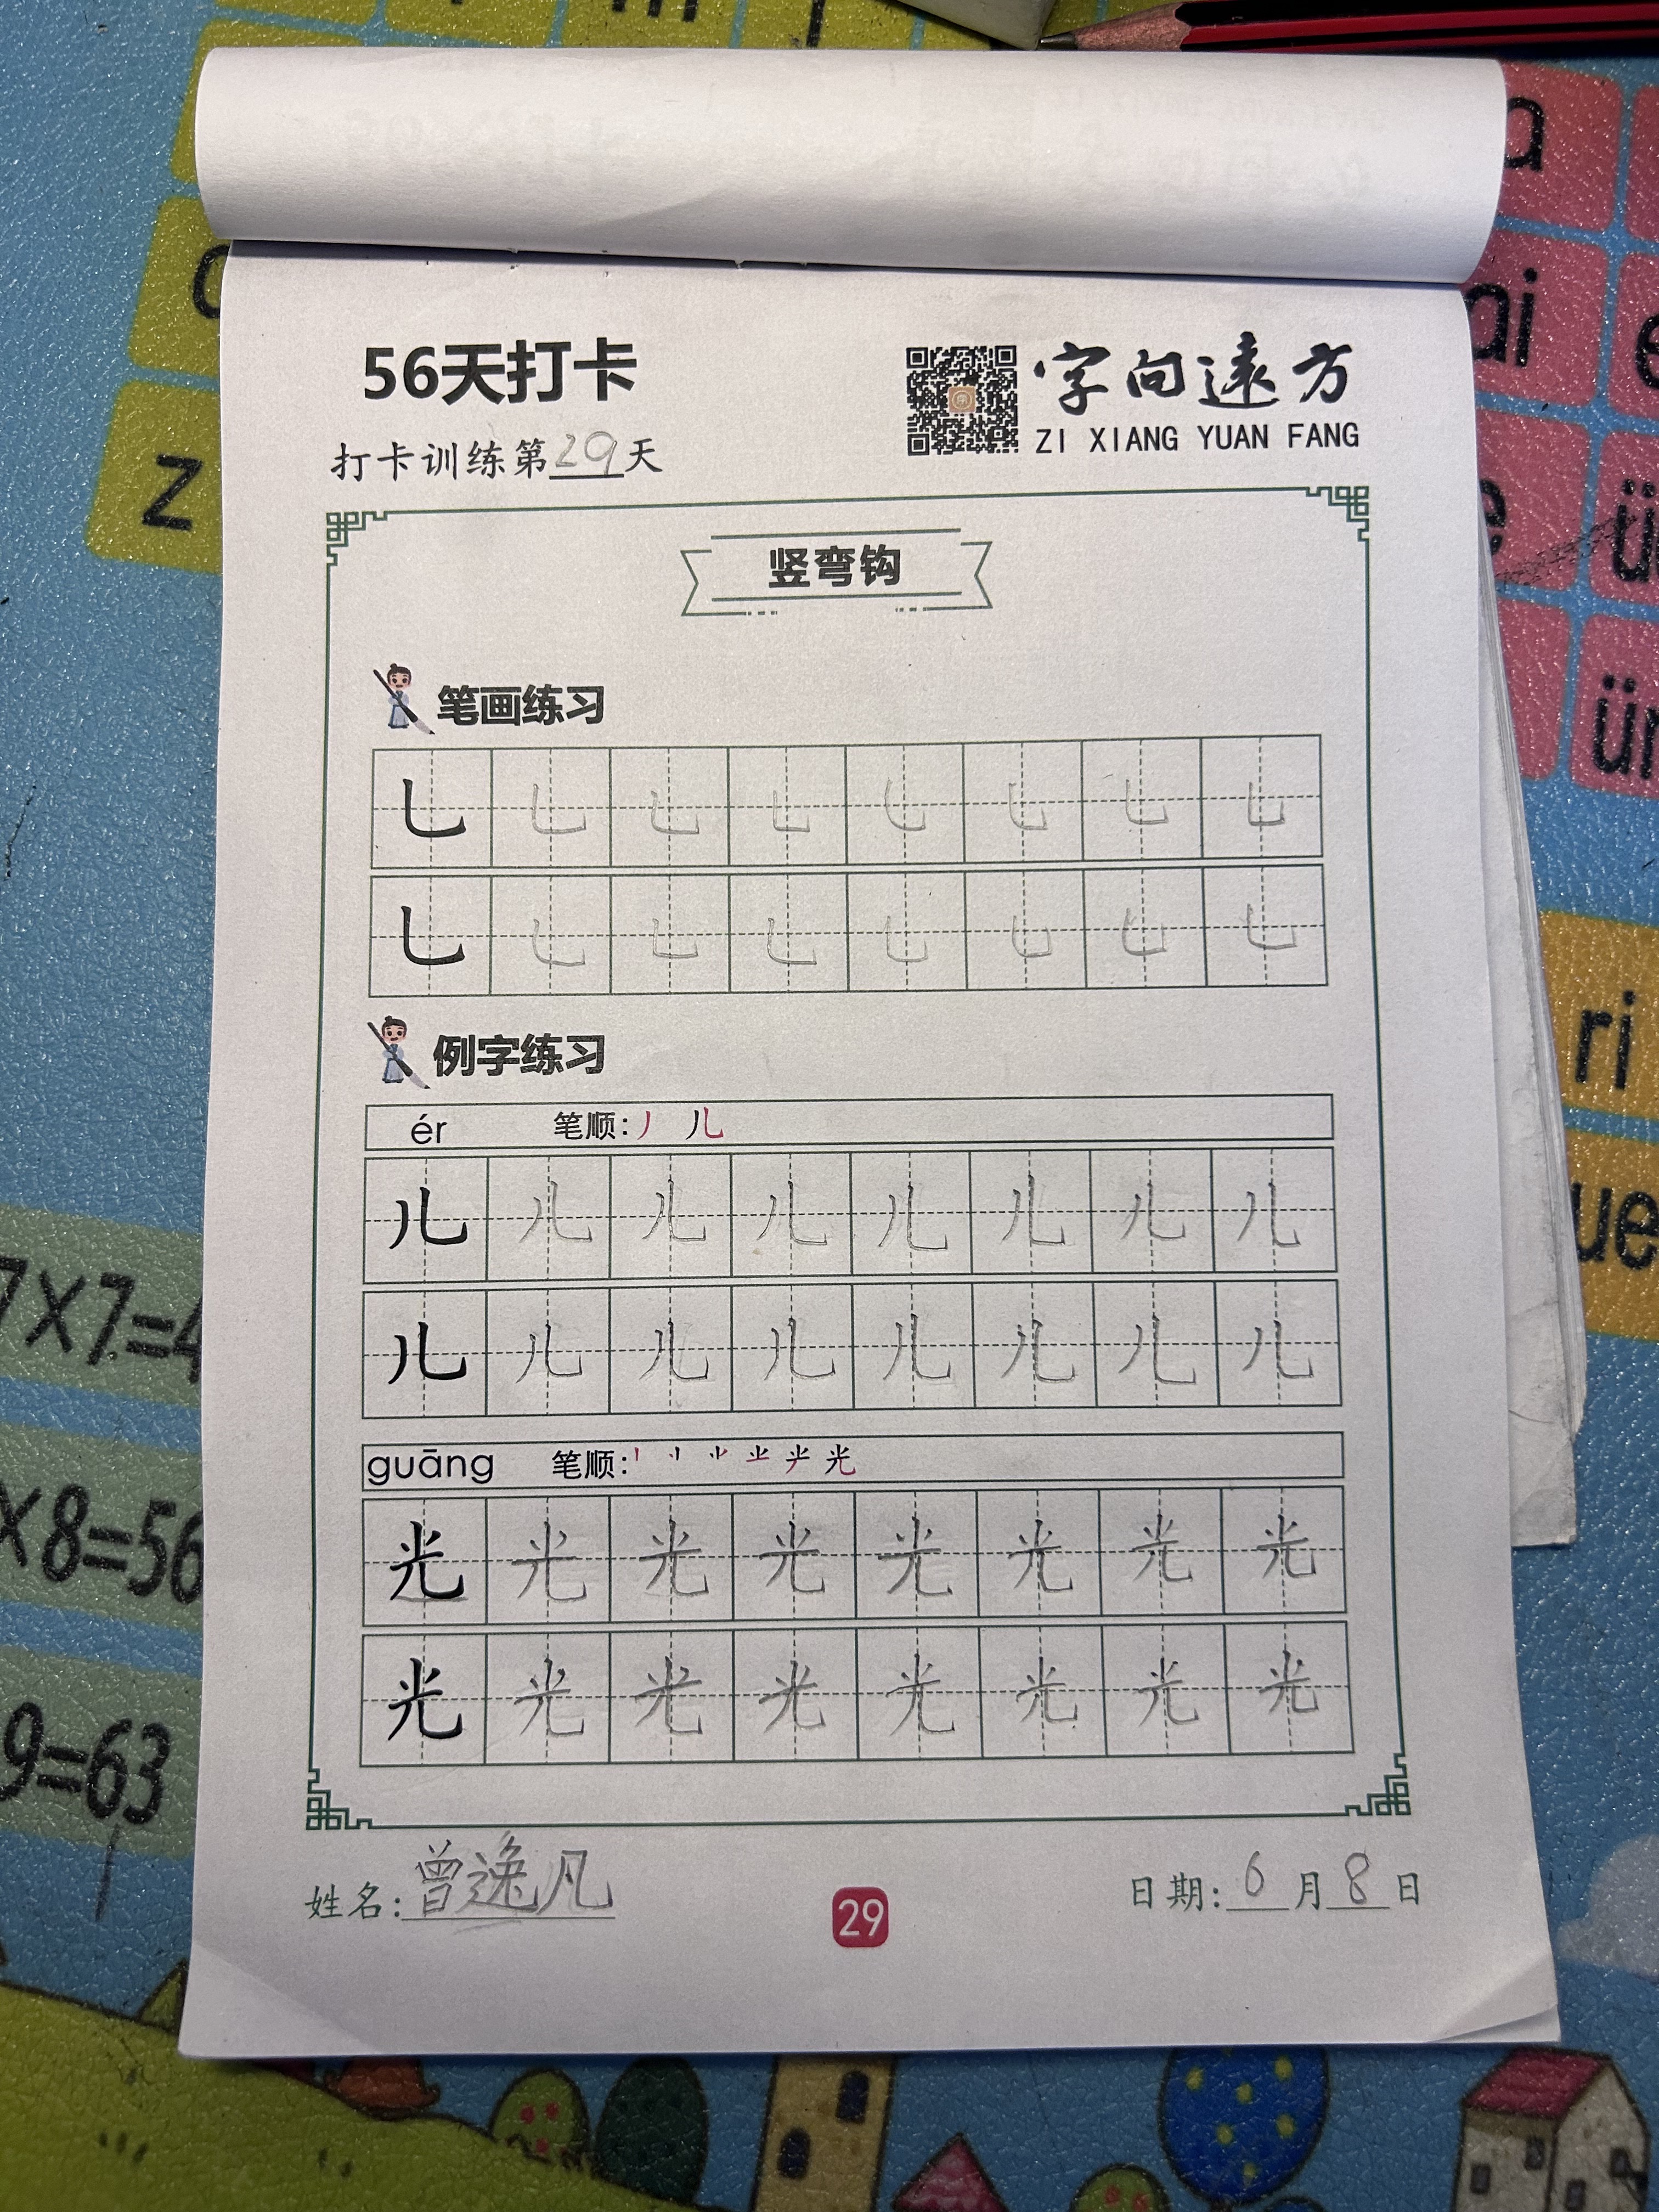 56天打卡
字向遠方
ZI XIANG YUAN FANG
打卡训练第29天
竖弯钩
笔画练习
乚 乚 乚 乚 乚 乚 乚 乚
乚 乚 乚 乚 乚 乚 乚 乚
例字练习
ér 笔顺: 丿 儿
儿 儿 儿 儿 儿 儿 儿 儿
儿 儿 儿 儿 儿 儿 儿 儿
guāng 笔顺: 光
光 光 光 光 光 光 光 光
光 光 光 光 光 光 光 光
姓名: 曾逸凡
29
日期: 6月8日
z
ri
7×7=4
×8=56
9=63